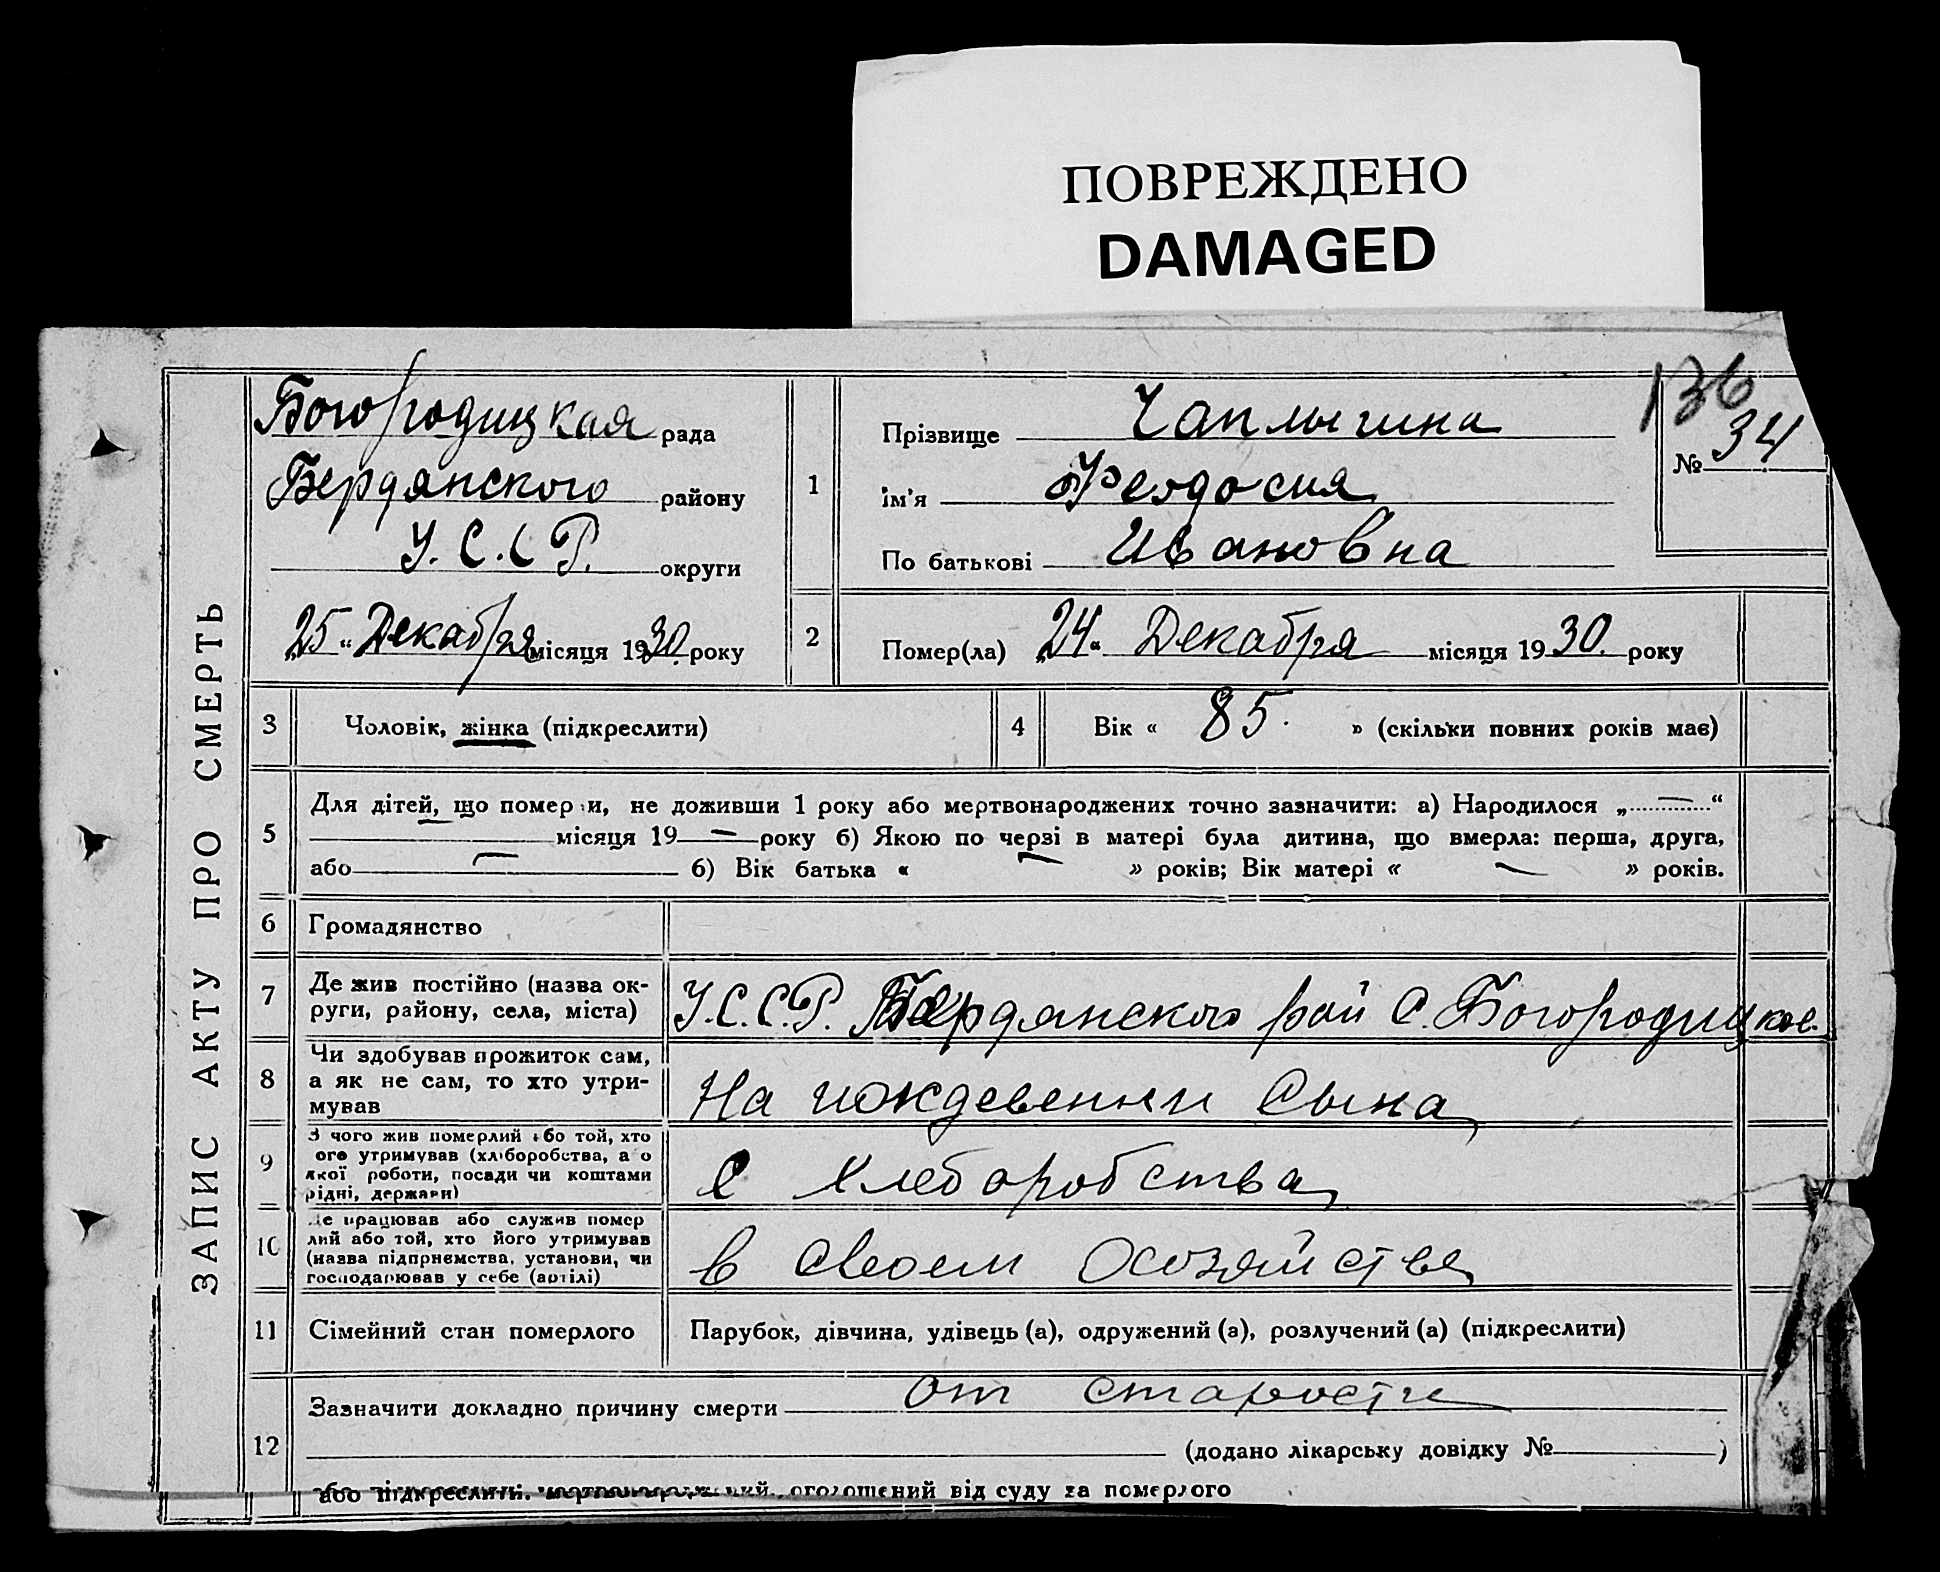 ПОВРЕЖДЕНО
DAMAGED
136
ЗАПИС АКТУ ПРО СМЕРТЬ
Богородицкая рада
Бердянского району
У.С.С.Р. округи
„25“ Декабря місяця 1930. року
1
Прізвище Чаплыгина
ім'я Феодосия
По батькові Ивановна
№ 34
2
Помер(ла) „24“ Декабря місяця 1930. року
3 Чоловік, жінка (підкреслити)
4 Вік « 85. » (скільки повних років має)
5
Для дітей, що померли, не доживши 1 року або мертвонароджених точно зазначити: а) Народилося „—“
місяця 19—року б) Якою по черзі в матері була дитина, що вмерла: перша, друга,
або — б) Вік батька « — » років; Вік матері « — » років.
6 Громадянство
7 Де жив постійно (назва округи, району, села, міста)
У.С.С.Р. Бердянского рай С. Богородицкое.
8 Чи здобував прожиток сам,
а як не сам, то хто утри-
мував
На иждевении сына
9 З чого жив померлий або той, хто
ого утримував (хліборобства, а о
якої роботи, посади чи коштами
рідні, держави)
с хлеборобства
10 Де працював або служив помер
лий або той, хто його утримував
(назва підприємства, установи, чи
господарював у себе (артілі)
в своем хозяйстве
11 Сімейний стан померлого
Парубок, дівчина, удівець (а), одружений (а), розлучений (а) (підкреслити)
12
Зазначити докладно причину смерти от старости
(додано лікарську довідку № )
або підкреслити: оголошений від суду за померлого